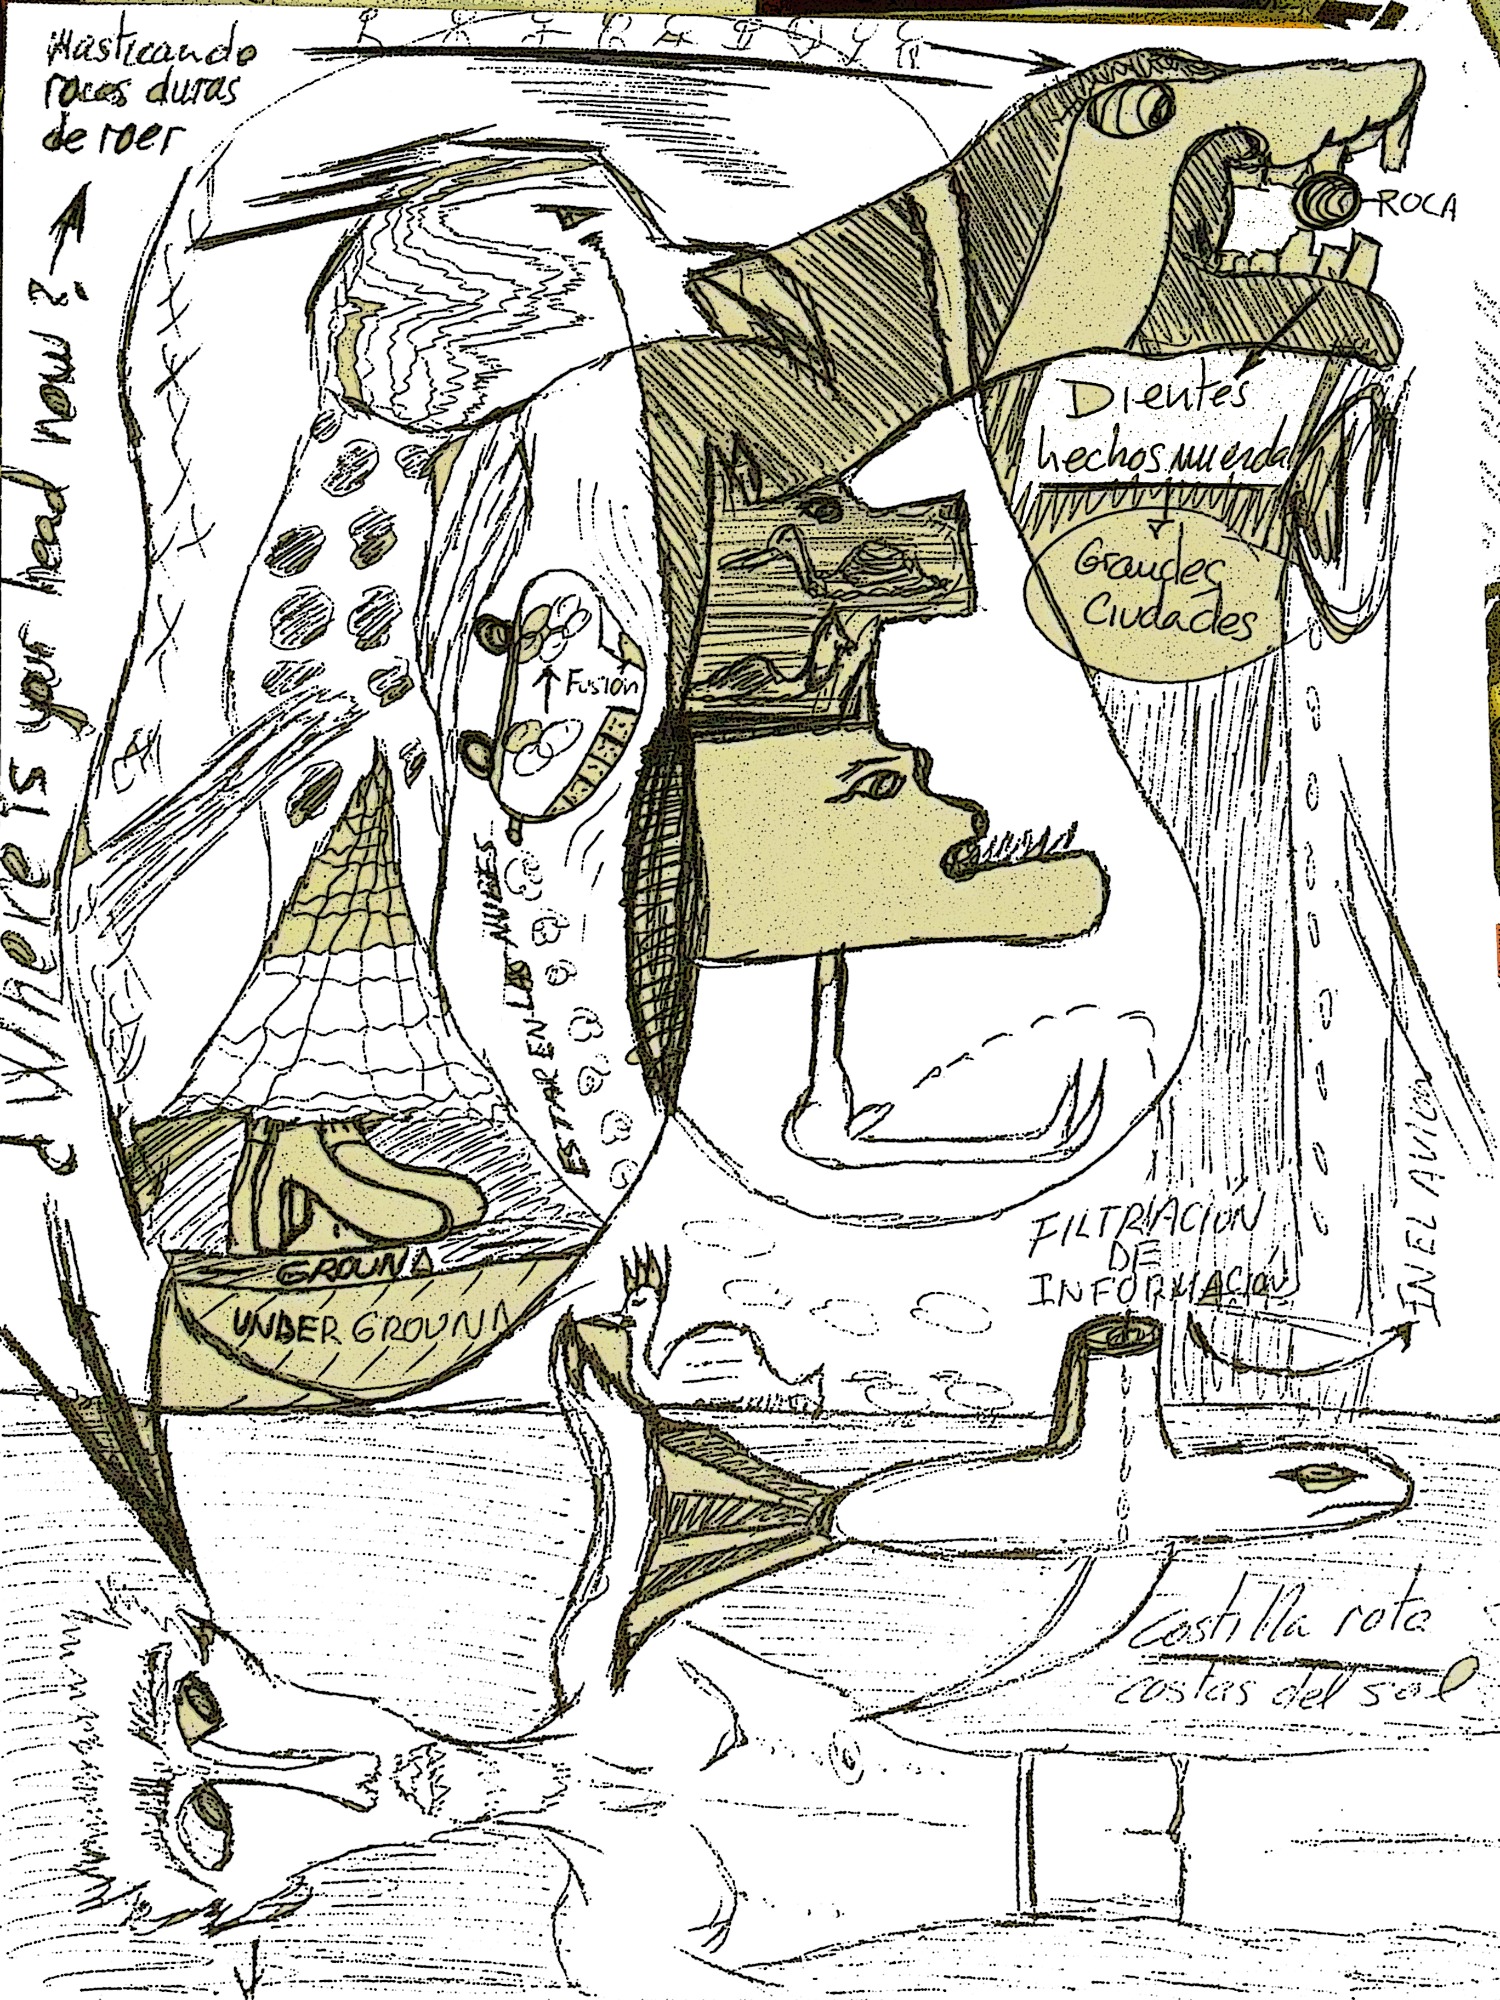 Masticando
rocas duras
de roer
ROCA
Dientes
hechos mierda
Grandes
Ciudades
¿Where is your head now?
Fusión
ESTAR EN LAS NUBES
GROUND
UNDER GROUND
FILTRACIÓN
DE
INFORMACIÓN
IN EL AVIÓN
Costilla rota
costas del sol